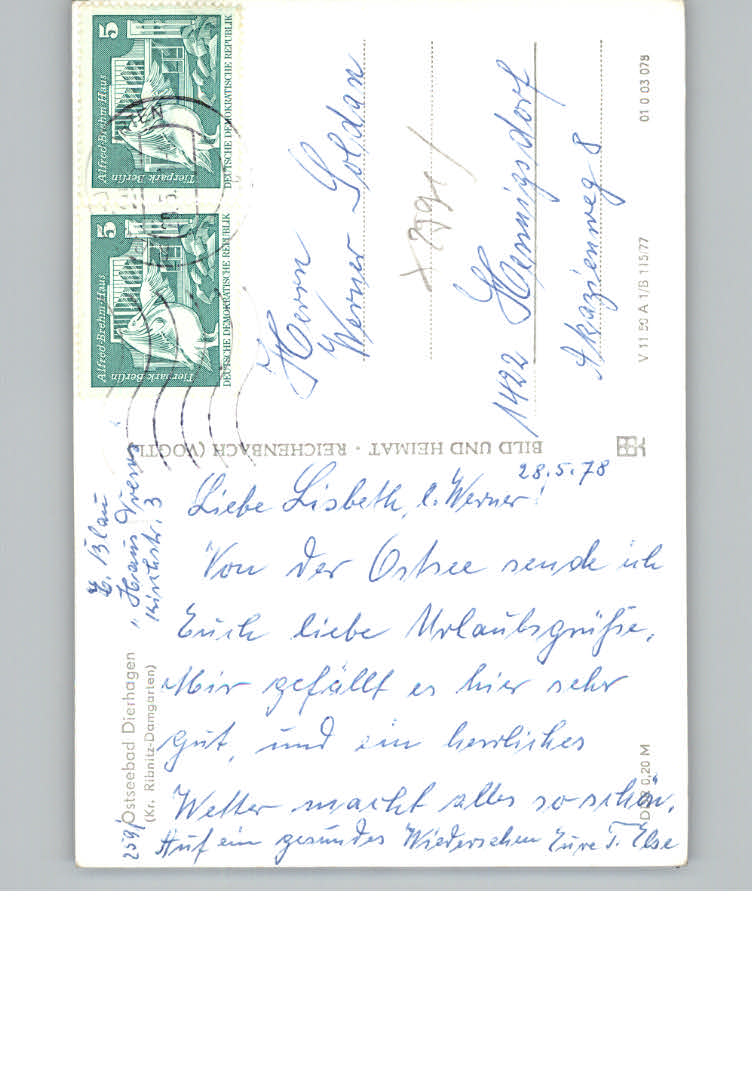 5
Alfred-Brehm-Haus
Tierpark Berlin
DEUTSCHE DEMOKRATISCHE REPUBLIK
5
Alfred-Brehm-Haus
Tierpark Berlin
DEUTSCHE DEMOKRATISCHE REPUBLIK
Herrn
Werner Goldan
1422 Hennigsdorf
Akazienweg 8
V 11 50 A 1/B 115/77
01 0 03 078
BILD UND HEIMAT · REICHENBACH (VOGTL
E. Blau
"Haus Drews
Kirchstr. 3
Ostseebad Dierhagen
(Kr. Ribnitz-Damgarten)
259/
28.5.78
Liebe Lisbeth, l. Werner!
Von der Ostsee sende ich
Euch liebe Urlaubsgrüße,
Mir gefällt es hier sehr
gut, und ein herrliches
Wetter macht alles so schön.
Auf ein gesundes Wiedersehen Eure T. Else
0,20 M